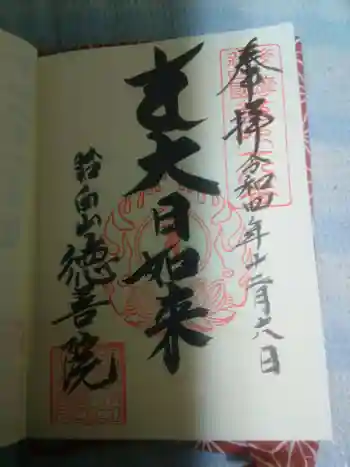 奉拝
令和四年十二月六日
大日如来
鈴白山
徳善院